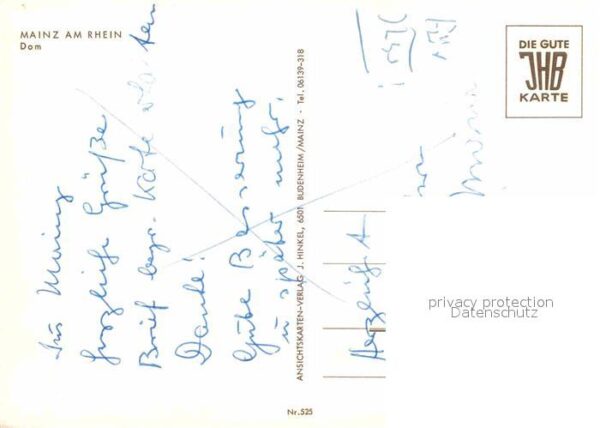 MAINZ AM RHEIN
Dom
Aus Mainz
herzliche Grüße
Brief bezw. Karte erhalten
Danke!
Gute Besserung
u. später mehr.
ANSICHTSKARTEN-VERLAG J. HINKEL, 6501 BUDENHEIM/MAINZ - Tel. 06139-318
Herzlichst
DIE GUTE
JHB
KARTE
privacy protection
Datenschutz
Nr. 525